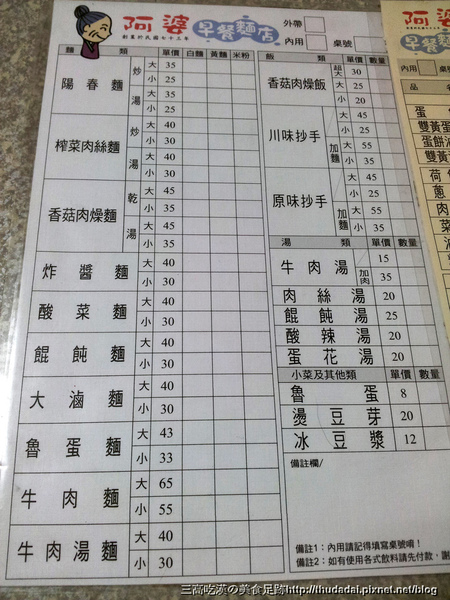 阿婆 早餐麵店
創業於民國七十三年
外帶
內用 桌號
麵類 單價 白麵 黃麵 米粉
陽春麵 炒 大 35
小 25
湯 大 35
小 25
榨菜肉絲麵 炒 大 40
小 30
湯 大 40
小 30
香菇肉燥麵 乾 大 45
小 35
湯 大 45
小 35
炸醬麵 大 40
小 30
酸菜麵 大 40
小 30
餛飩麵 大 40
小 30
大滷麵 大 40
小 30
魯蛋麵 大 43
小 33
牛肉麵 大 65
小 55
牛肉湯麵 大 40
小 30
飯類 單價 數量
香菇肉燥飯 超大 30
大 25
小 20
川味抄手 大 35
小 25
加麵 大 55
小 35
原味抄手 大 35
小 25
加麵 大 55
小 35
湯類 單價 數量
牛肉湯 15
加肉 35
肉絲湯 20
餛飩湯 25
酸辣湯 20
蛋花湯 20
小菜及其他類 單價 數量
魯蛋 8
燙豆芽 20
冰豆漿 12
備註欄/
備註1：內用請記得填寫桌號唷！
備註2：如有使用各式飲料請先付款，謝
阿
早餐
內用 桌
品名
蛋
雙黃蛋
蛋餅
雙黃
荷
蔥
肉
菜
三高吃漢の美食足跡http://thudadai.pixnet.net/blog